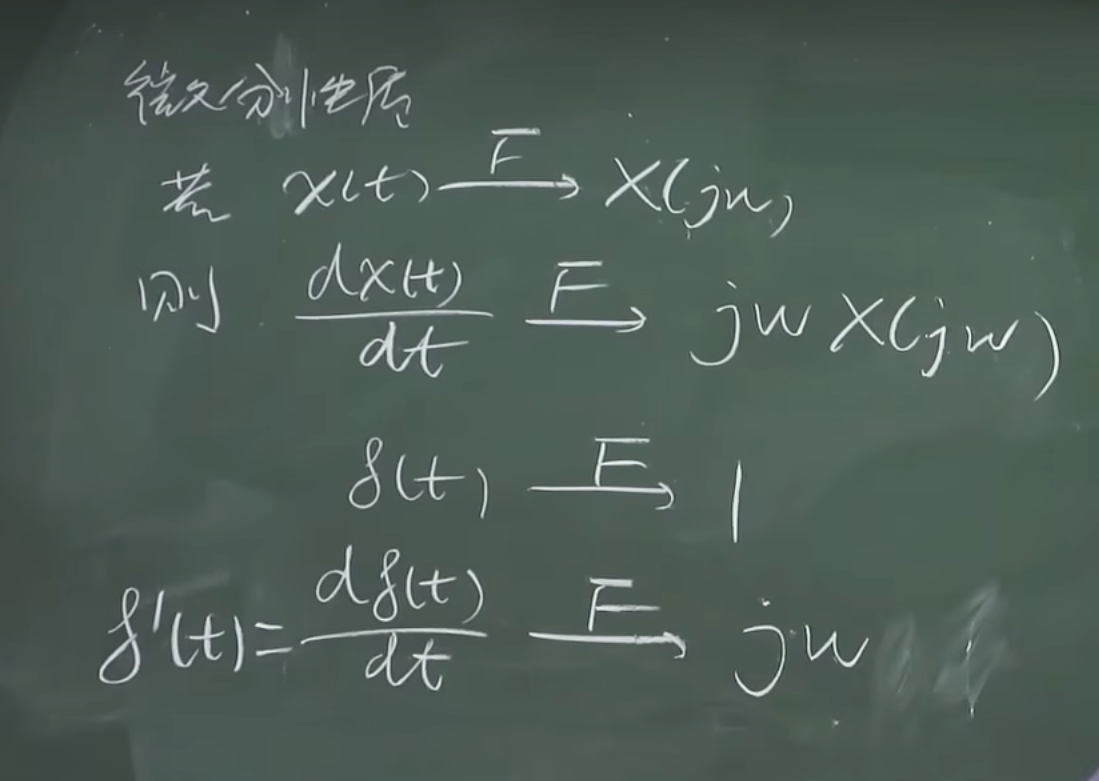 微分性质
若 x(t) —F→ X(jw)
则 dx(t)/dt —F→ jw X(jw)
δ(t) —F→ 1
δ'(t) = dδ(t)/dt —F→ jw